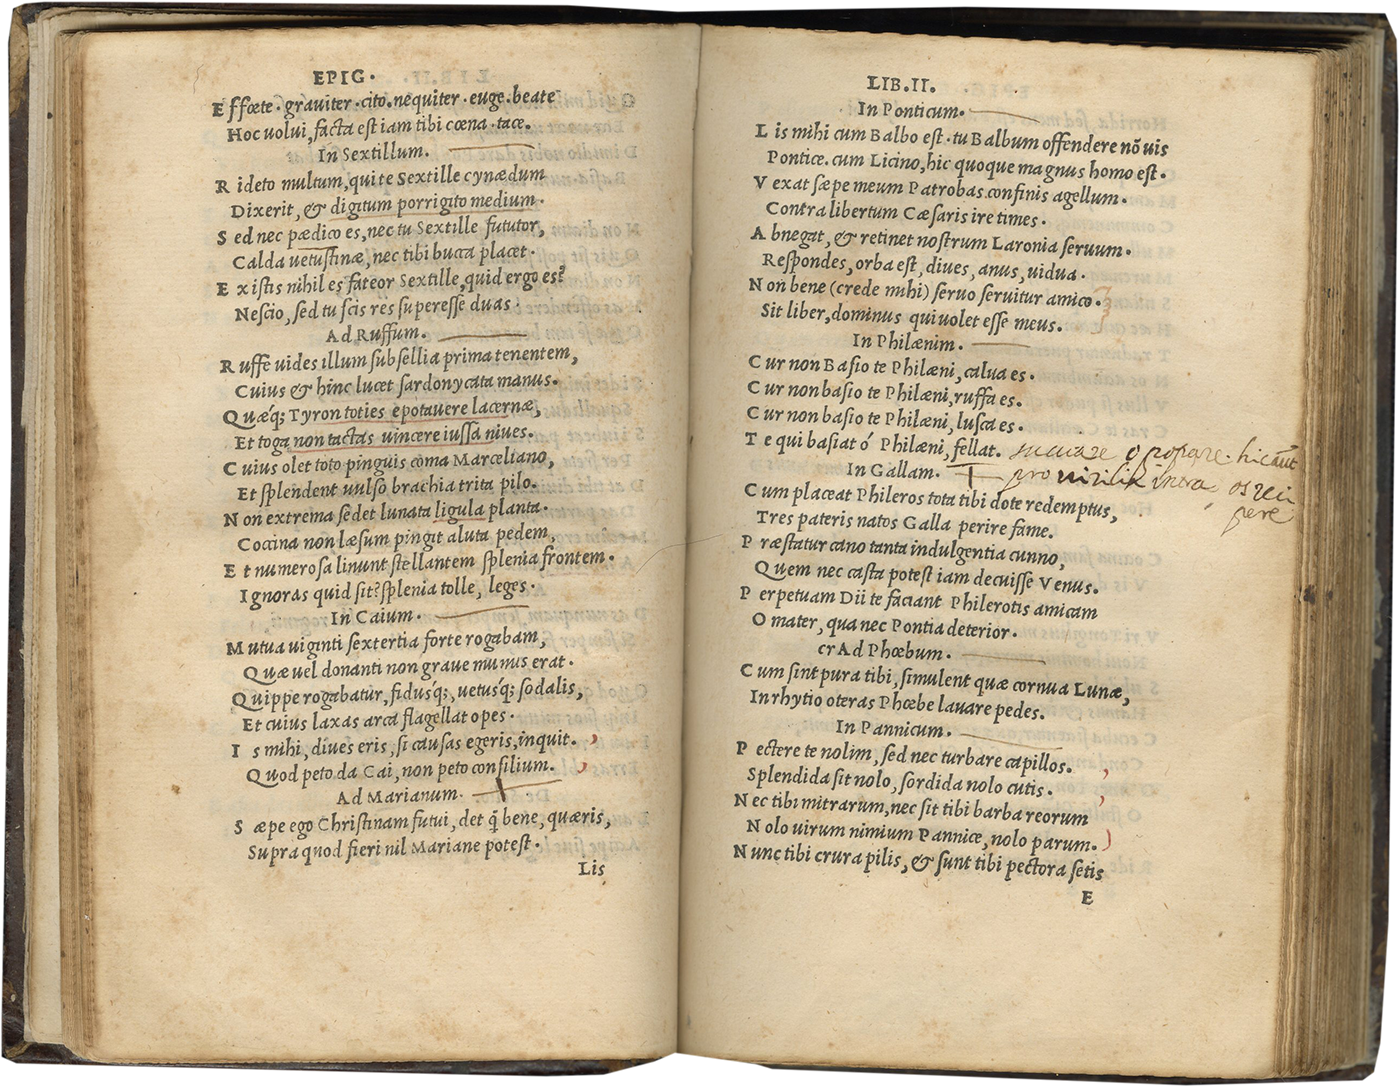 EPIG.
Effœte.graviter.cito.nequiter.euge.beate
Hoc uolui, facta est iam tibi cœna.tace.
In Sextillum.
Rideto multum, qui te Sextille cynædum
Dixerit, & digitum porrigito medium.
Sed nec pædico es, nec tu Sextille fututor,
Calda uetustinæ, nec tibi bucca placet.
Ex istis nihil es fateor Sextille, quid ergo es?
Nescio, sed tu scis res superesse duas.
Ad Ruffum.
Ruffe uides illum subsellia prima tenentem,
Cuius & hinc lucet sardonycata manus.
Quæq; Tyron toties epotauere lacernæ,
Et toga non tactas uincere iussa niues.
Cuius olet toto pinguis coma Marceliano,
Et splendent uulso brachia trita pilo.
Non extrema sedet lunata ligula planta.
Coccina non læsum pingit aluta pedem,
Et numerosa linunt stellantem splenia frontem.
Ignoras quid sit? splenia tolle, leges.
In Caium.
Mutua uiginti sextertia forte rogabam,
Quæ uel donanti non graue munus erat.
Quippe rogabatur, fidusq́;, uetusq́; sodalis,
Et cuius laxas arca flagellat opes.
Is mihi, diues eris, si causas egeris, inquit.
Quod peto da Cai, non peto consilium.
Ad Marianum.
Sæpe ego Christinam futui, det q̄ bene, quæris,
Supra quod fieri nil Mariane potest.
Lis
LIB.II.
In Ponticum.
Lis mihi cum Balbo est.tu Balbum offendere nõ uis
Pontice.cum Licino, hic quoque magnus homo est.
Vexat sæpe meum Patrobas confinis agellum.
Contra libertum Cæsaris ire times.
Abnegat, & retinet nostrum Laronia seruum.
Respondes, orba est, diues, anus, uidua.
Non bene (crede mihi) seruo seruitur amico.
Sit liber, dominus qui uolet esse meus.
In Philænim.
Cur non Basio te Philæni, calua es.
Cur non basio te Philæni, ruffa es.
Cur non basio te Philæni, lusca es.
Te qui basiat ó Philæni, fellat.
In Gallam.
Cum placeat Phileros tota tibi dote redemptus,
Tres pateris natos Galla perire fame.
Præstatur cano tanta indulgentia cunno,
Quem nec casta potest iam decuisse Venus.
Perpetuam Dii te faciant Philerotis amicam
O mater, qua nec Pontia deterior.
crAd Phœbum.
Cum sint pura tibi, simulent quæ cornua Lunæ,
In rhytio oteras Phœbe lauare pedes.
In Pannicum.
Pectere te nolim, sed nec turbare capillos.
Splendida sit nolo, sordida nolo cutis.
Nec tibi mitrarum, nec sit tibi barba reorum
Nolo uirum nimium Pannice, nolo parum.
Nunc tibi crura pilis, & sunt tibi pectora setis
E